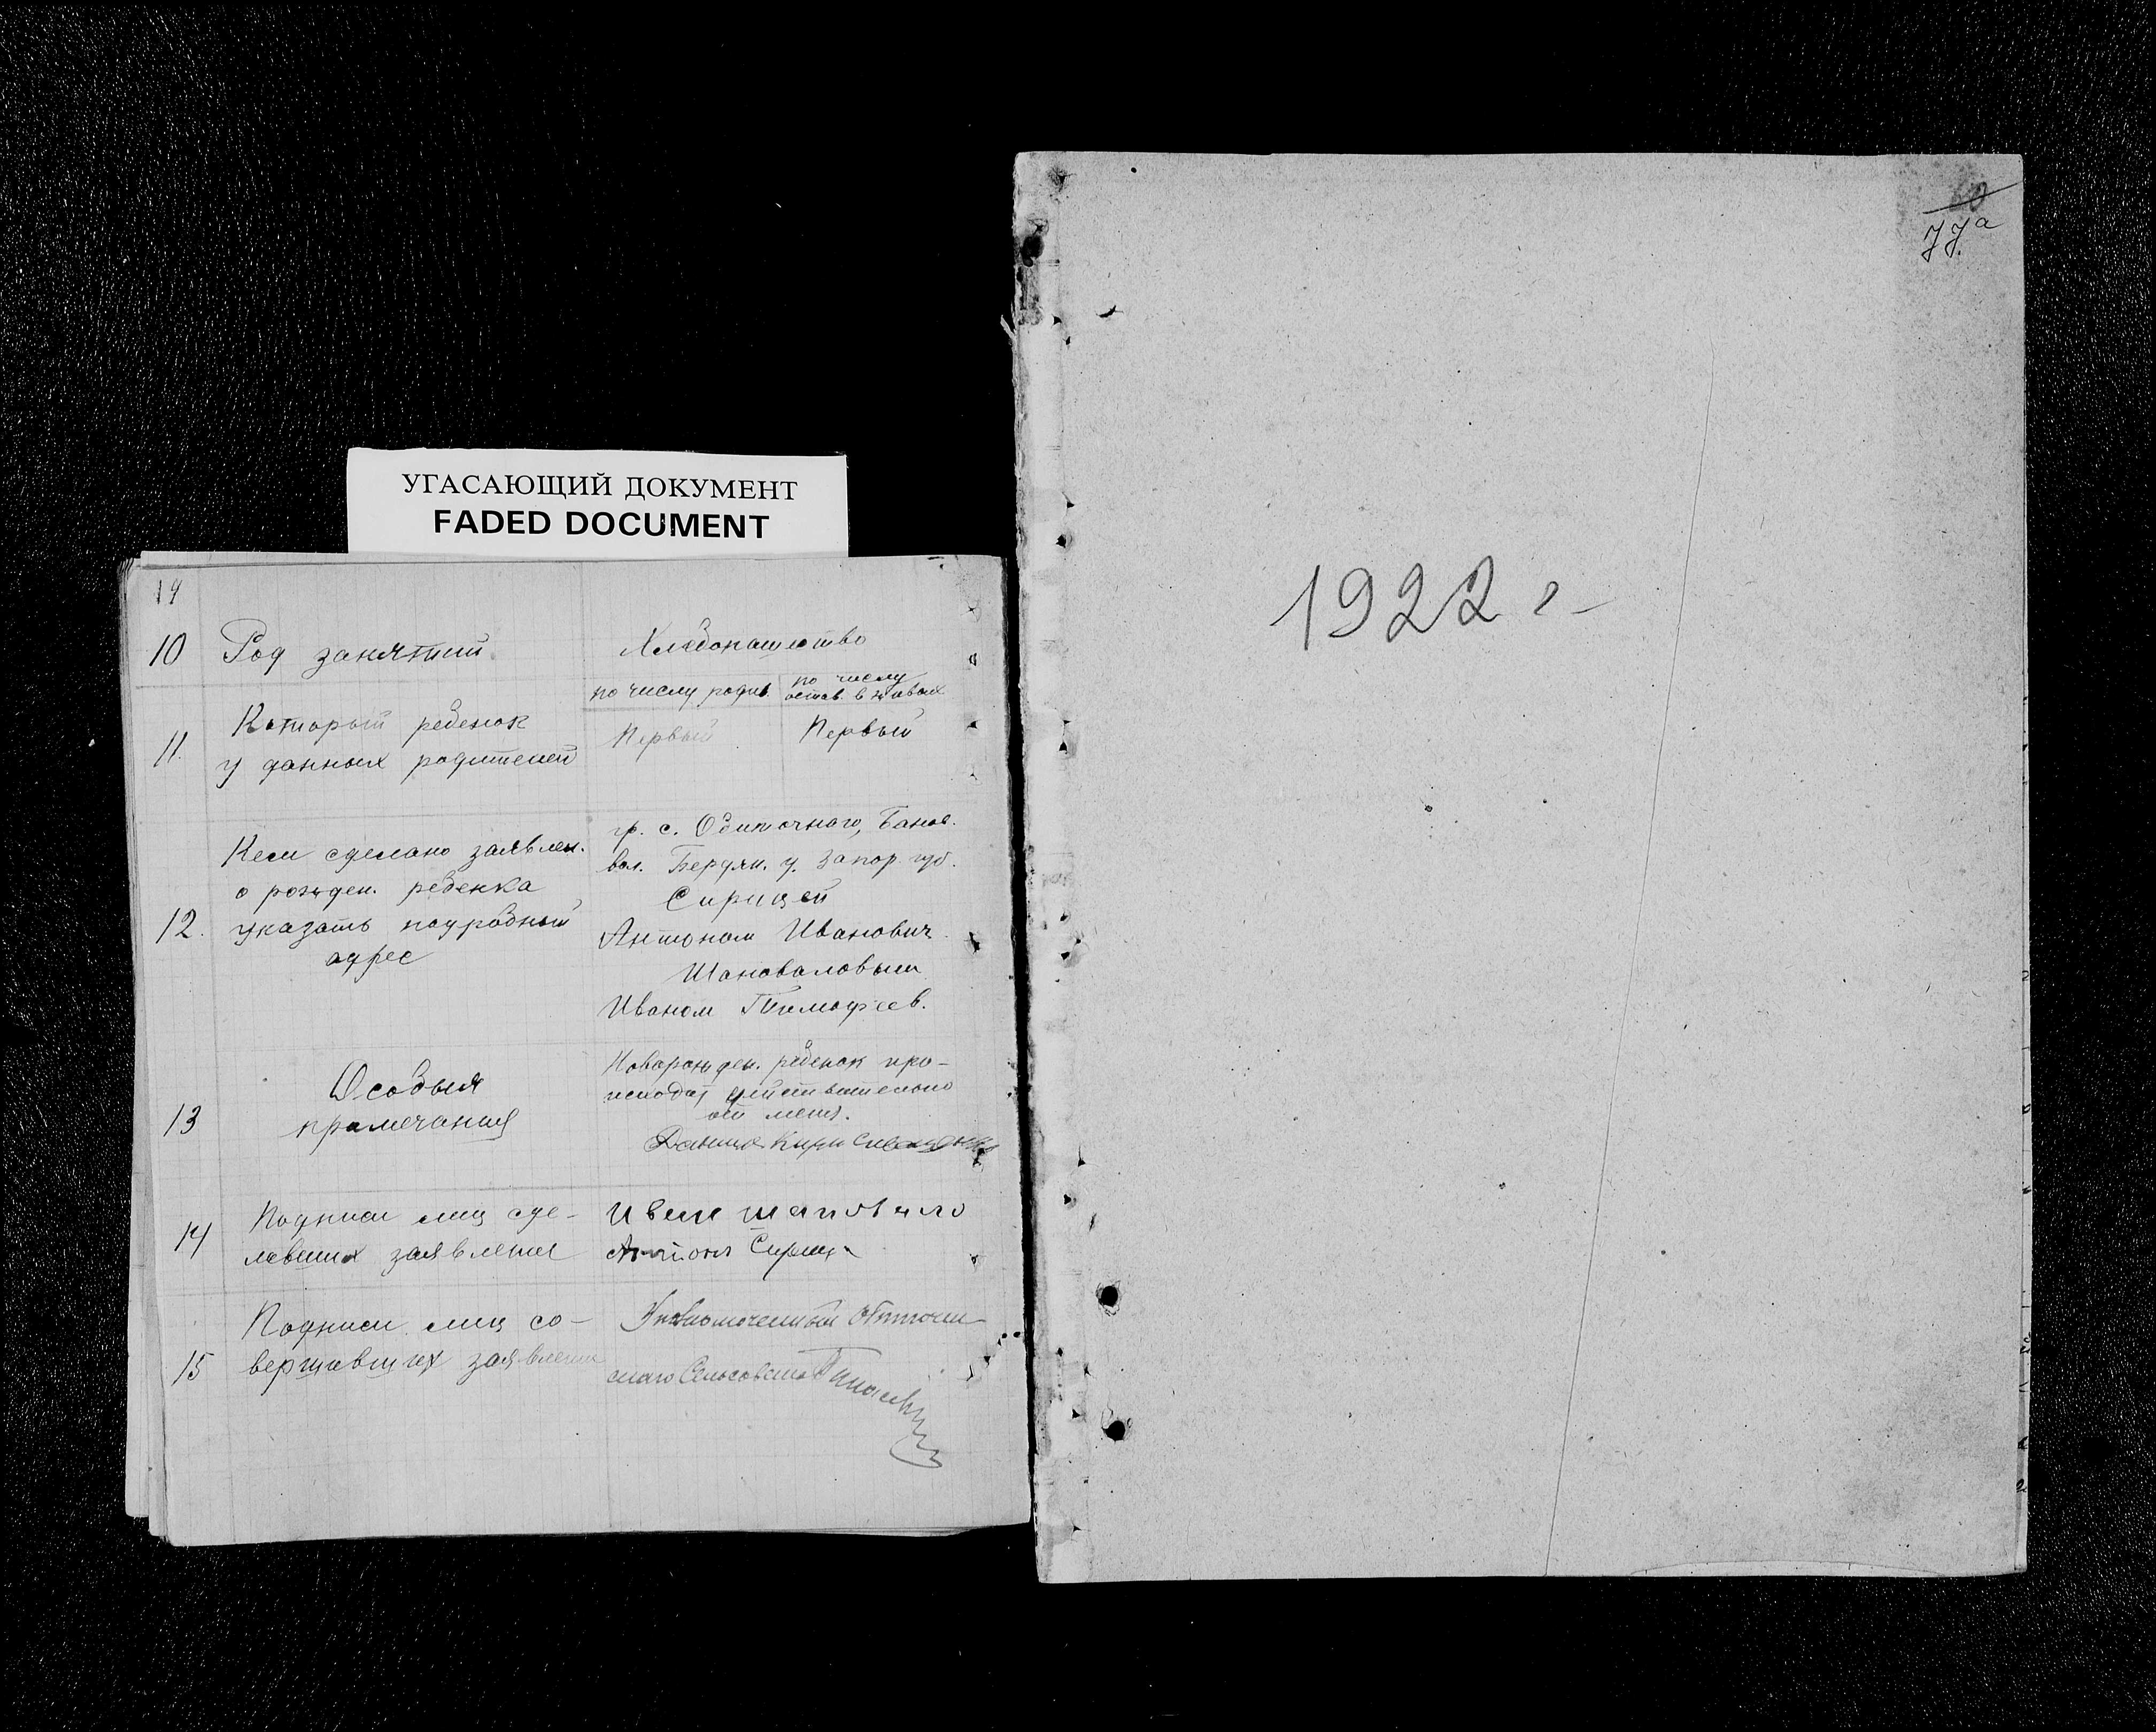 УГАСАЮЩИЙ ДОКУМЕНТ
FADED DOCUMENT
19
10 Род занятий Хлебопашество
по числу родив. по числу
остав. в живых
11. Который ребенок
у данных родителей
Первый Первый
12. Кем сделано заявлен.
о рожден. ребенка
указать подробный
адрес
гр. с. Обиточного, Банов.
вол. Бердян. у. Запор. губ.
Сирицей
Антоном Иванович.
Шаповаловым
Иваном Тимофеев.
13 Особыя
примечания
Новорожден. ребенок про-
исходит действительно
от меня.
14 Подписи лиц сде-
лавших заявление
Иван шаповало
Антон Сирица
15 Подписи лиц со-
вершавших заявление
Уполномоченный Обиточен-
скаго Сельсовета
1922 г.
77а